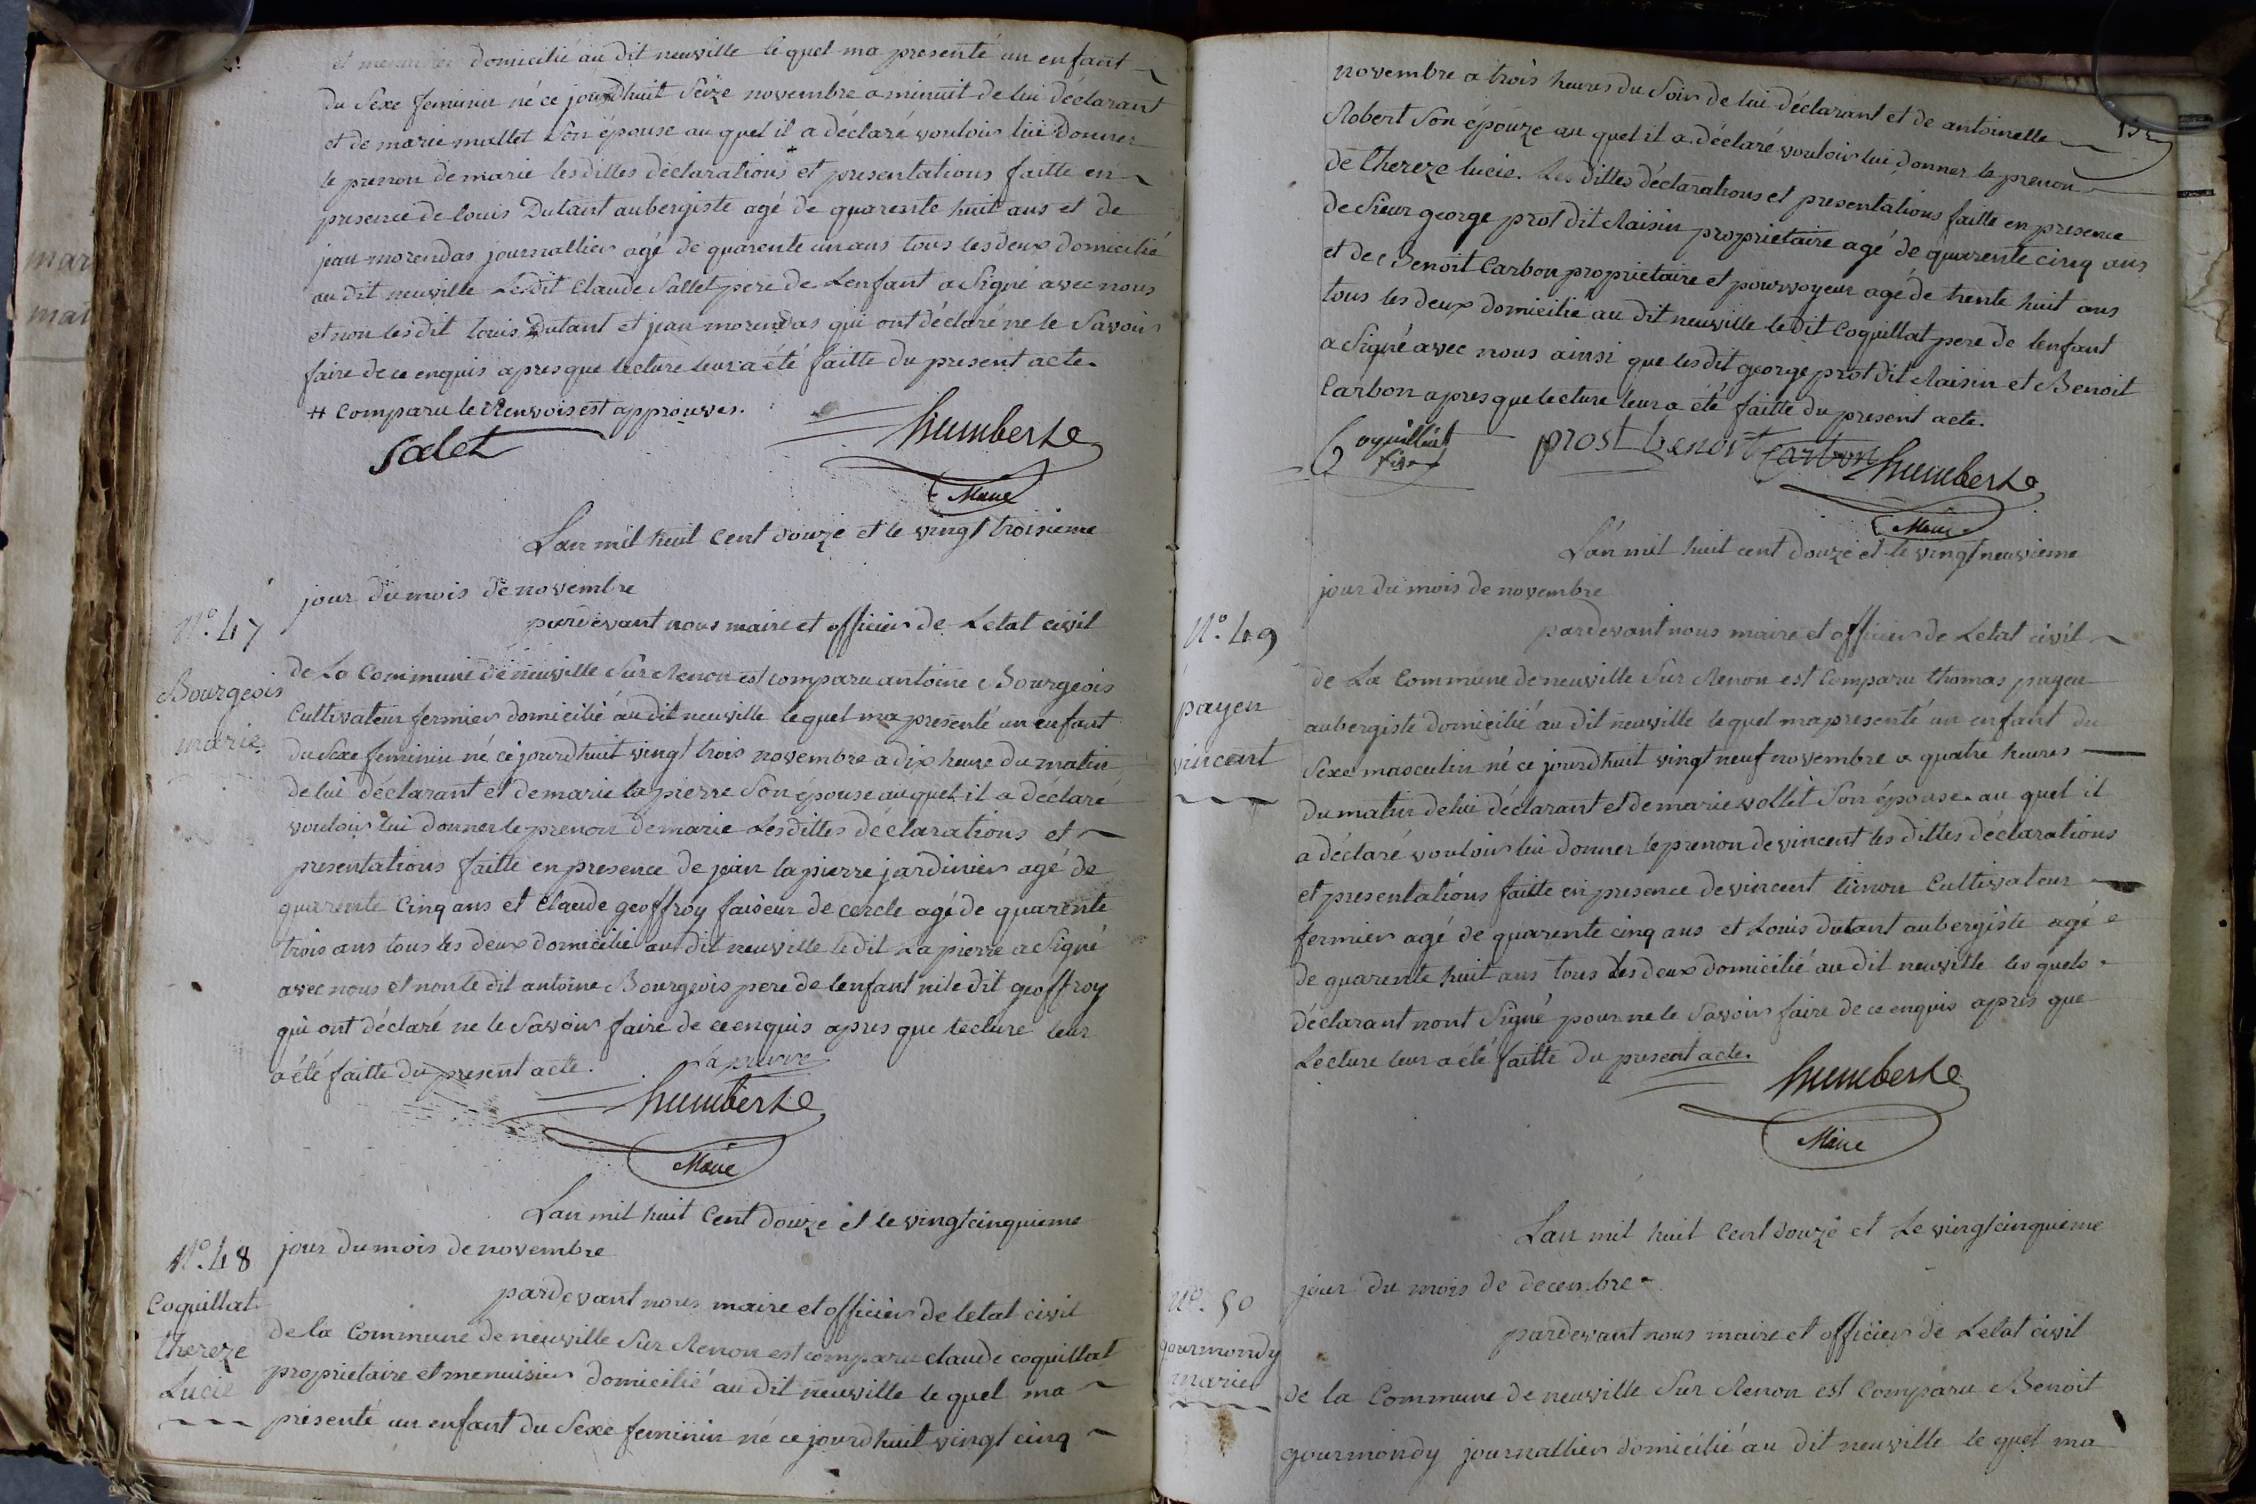 et menuisier domicilié au dit neuville le quel ma presenté un enfant
du Sexe feminin né ce jourdhuit Seize novembre a minuit de lui déclarant
et de marie mallet Son épouse au quel il a déclaré vouloir lui donner
le prenon de marie les dittes déclarations et presentations faitte en
presence de louis Dutant aubergiste agé de quarente huit ans et de
jean morendas journallier agé de quarente un ans tous les deux domicilié
au dit neuville Ledit Claude Sallet pere de Lenfant a Signé avec nous
et non les dit louis Dutant et jean morendas qui ont déclaré ne le Savoir
faire de ce enquis apres que lecture leur a été faitte du present acte.
# Comparu le Renvois est approuves.
Salet
humbert
Maire
Lan mil huit Cent douze et le vingt troisieme
jour du mois de novembre
N.º 47
Bourgeois
marie
pardevant nous maire et officier de Letat civil
de La Commune de neuville Sur Renon est comparu antoine Bourgeois
Cultivateur fermier domicilié au dit neuville lequel ma presenté un enfant
du Sexe feminin né ce jourdhuit vingt trois novembre a dix heure du matin
de lui déclarant et de marie lapierre Son épouse au quel il a déclaré
vouloir lui donner le prenon de marie Les dittes déclarations et
presentations faitte en presence de jean lapierre jardinier agé de
quarente Cinq ans et Claude geoffroy faiseur de cercle agé de quarente
trois ans tous les deux domicilié au dit neuville le dit Lapierre a Signé
avec nous et non le dit antoine Bourgeois pere de lenfant ni le dit geoffroy
qui ont déclaré ne le Savoir faire de ce enquis apres que lecture leur
a été faitte du present acte.
humbert
Maire
Lan mil huit Cent douze et le vingtcinquieme
jour du mois de novembre
N.º 48
Coquillat
thereze
Lucie
pardevant nous maire et officier de letat civil
de la Commune de neuville Sur Renon est comparu claude coquillat
proprietaire et menuisier domicilié au dit neuville le quel ma
présenté un enfant du Sexe feminin né ce jourdhuit vingt cinq
novembre a trois heures du Soir de lui déclarant et de antoinette
Robert Son épouze au quel il a déclaré vouloir lui donner le prenon
de thereze lucie. Les dittes déclarations et presentations faitte en presence
de Sieur george prost dit Raisin proprietaire agé de quarente cinq ans
et de Benoit Carbon proprietaire et pourvoyeur agé de trente huit ans
tous les deux domicilié au dit neuville le dit Coquillat pere de lenfant
a Signé avec nous ainsi que les dit george prost dit Raisin et Benoit
Carbon apres que lecture leur a été faitte du present acte.
Coquillat
prost benoit Carbon humbert
Maire
Lan mil huit cent douze et le vingtneuvieme
jour du mois de novembre
N.º 49
payen
vincent
pardevant nous maire et officier de Letat civil
de La Commune de neuville Sur Renon est Comparu thomas payen
aubergiste domicilié au dit neuville le quel ma presenté un enfant du
Sexe masculin né ce jourdhuit vingt neuf novembre a quatre heures
du matin de lui déclarant et de marie vollet Son épouse. au quel il
a déclaré vouloir lui donner le prenon de vincent les dittes déclarations
et presentations faitte en presence de vincent Cultivateur
fermier agé de quarente cinq ans et Louis dutant aubergiste agé
de quarente huit ans tous les deux domicilié au dit neuville les quels
déclarant nont Signé pour ne le Savoir faire de ce enquis apres que
Lecture leur a été faitte du present acte.
humbert
Maire
Lan mil huit Cent douze et Le vingtcinquieme
jour du mois de decembre
Nº. 50
gourmondy
marie
pardevant nous maire et officier de Letat civil
de la Commune de neuville Sur Renon est Comparu Benoit
gourmondy journallier domicilié au dit neuville le quel ma